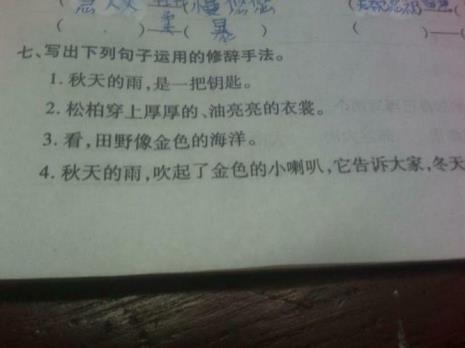 七、写出下列句子运用的修辞手法。
1. 秋天的雨,是一把钥匙。
2. 松柏穿上厚厚的、油亮亮的衣裳。
3. 看,田野像金色的海洋。
4. 秋天的雨,吹起了金色的小喇叭,它告诉大家,冬天